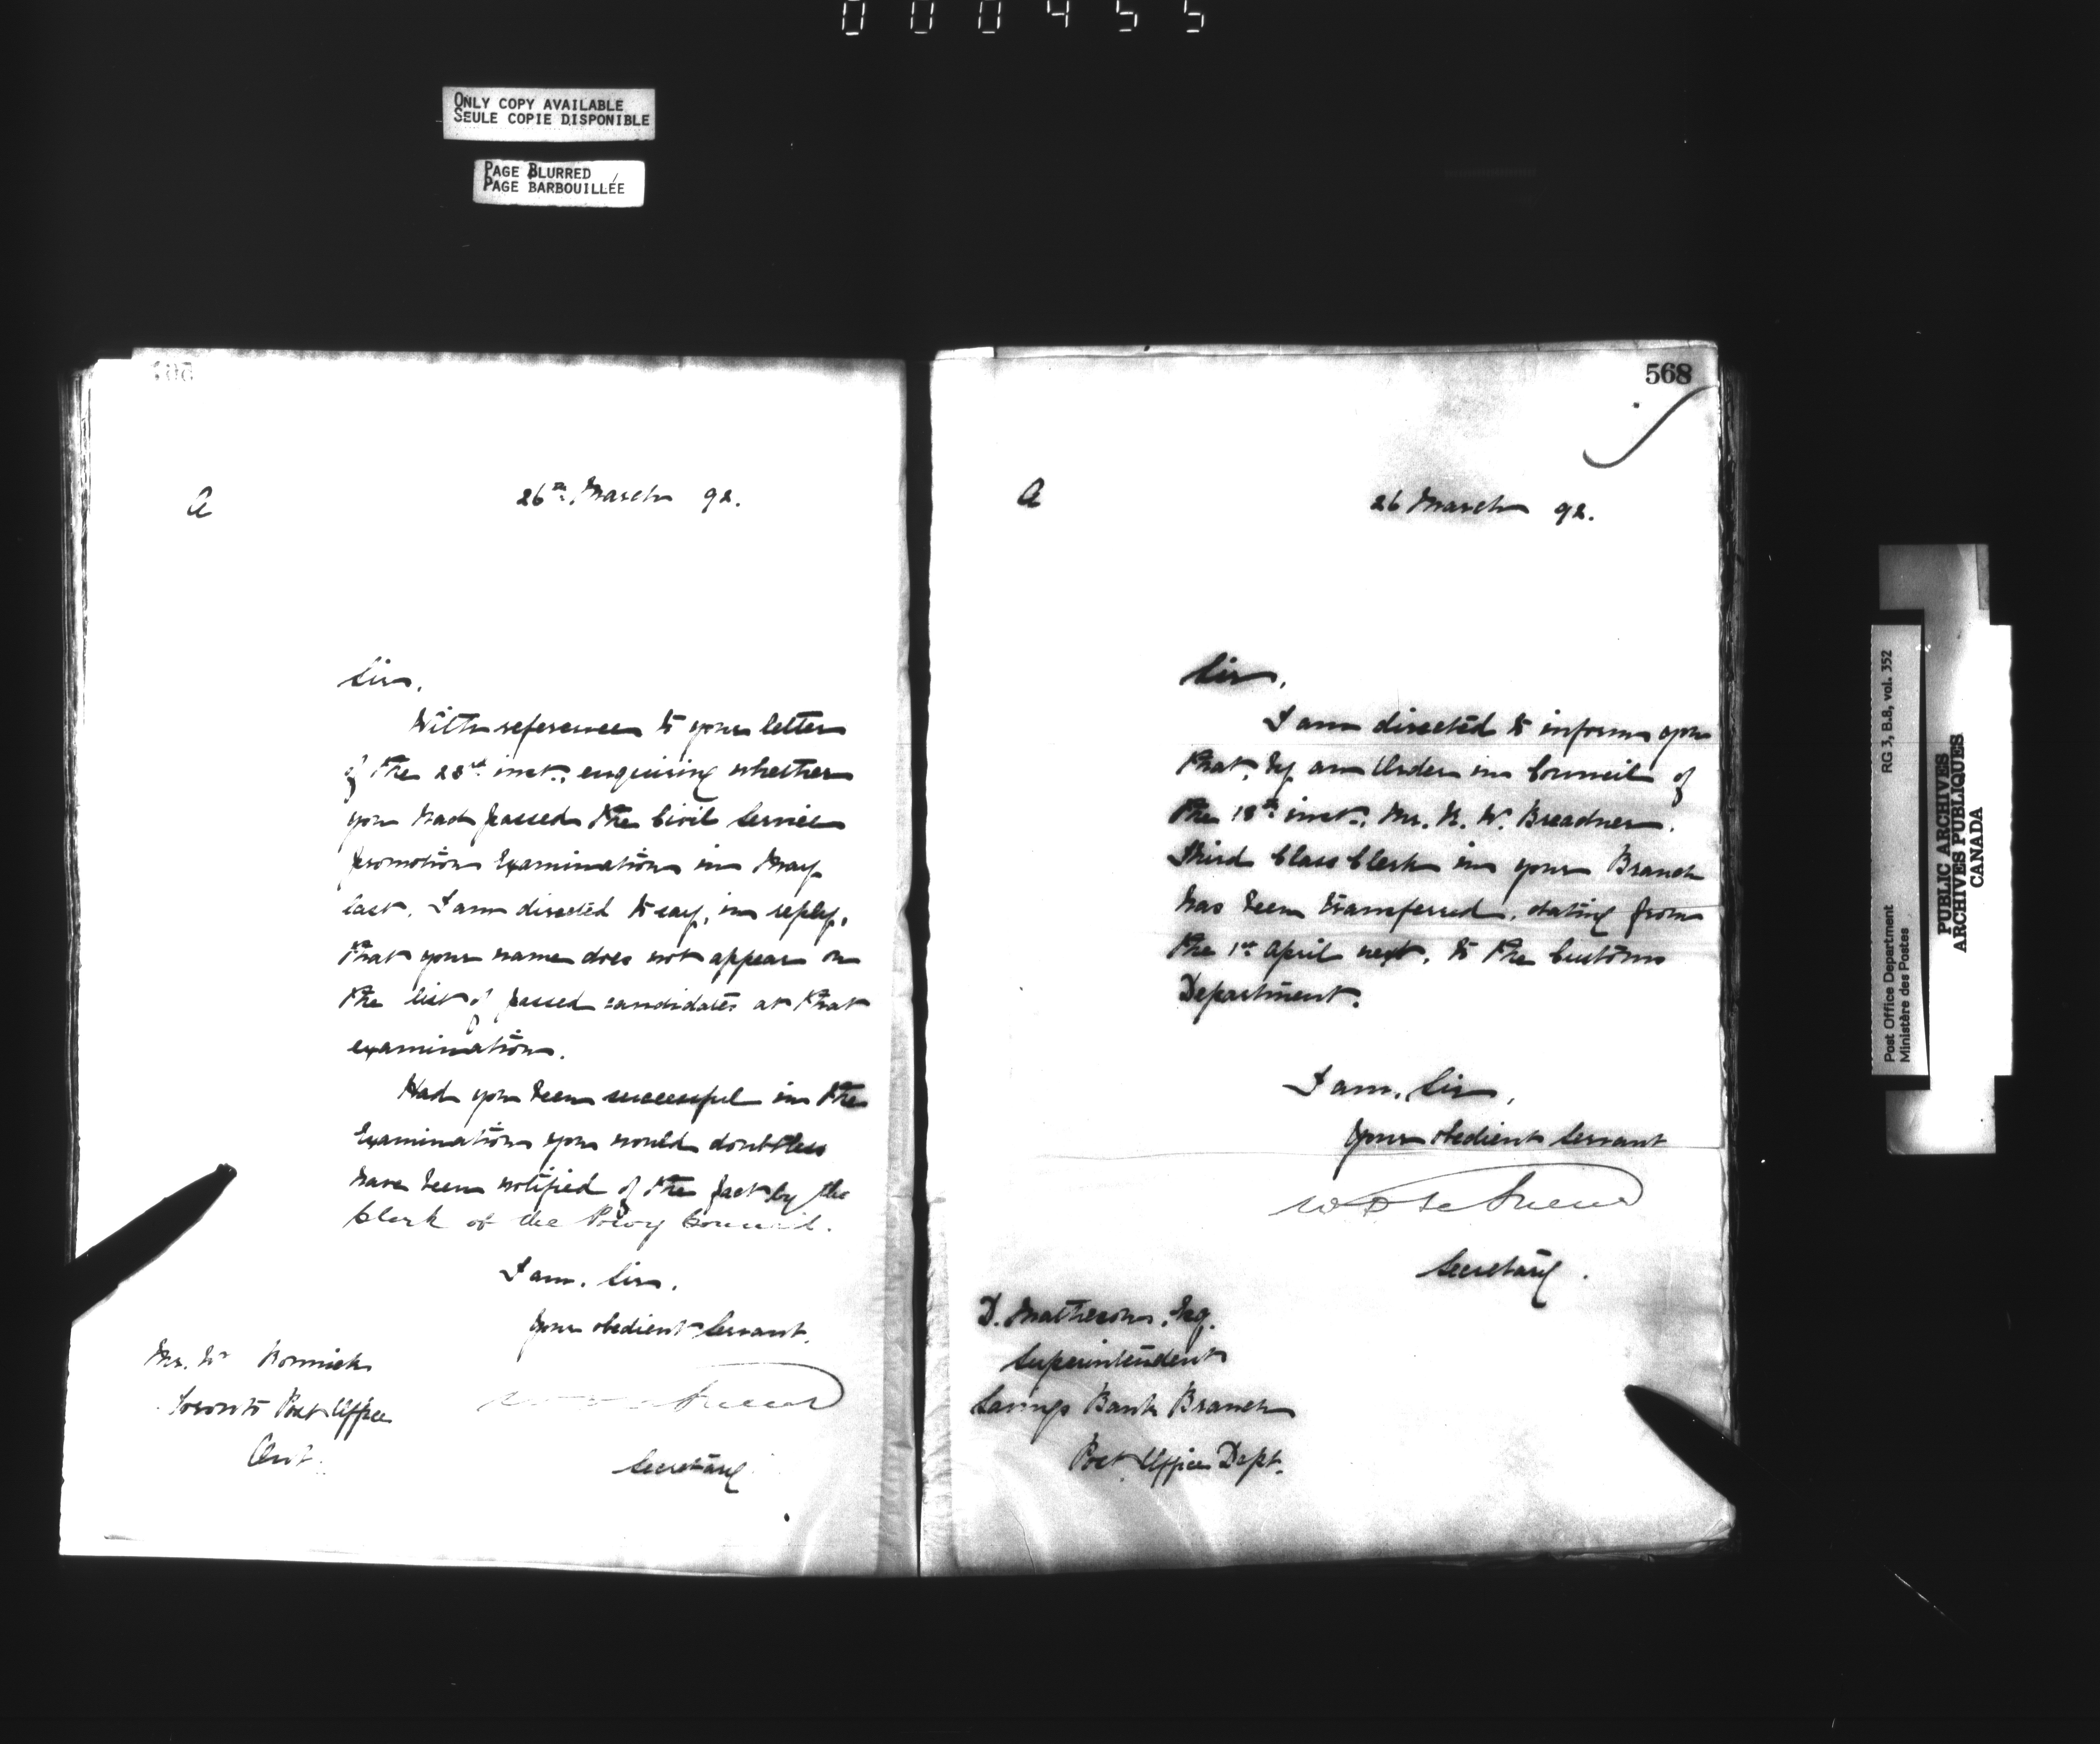 000455
ONLY COPY AVAILABLE
SEULE COPIE DISPONIBLE
PAGE BLURRED
PAGE BARBOUILLÉE
A
26th March 92.
Sir,
With reference to your letter
of the 23rd inst., enquiring whether
you had passed the Civil Service
promotion Examination in May
last, I am directed to say, in reply,
that your name does not appear on
the list of passed candidates at that
examination.
Had you been successful in the
Examination you would doubtless
have been notified of the fact by the
Clerk of the Privy Council.
I am, Sir,
Your obedient Servant,
Secretary
Mr. Wm
Toronto Post Office
Ont.
568
A
26 March 92.
Sir,
I am directed to inform you
that, by an Order in Council of
the 18th inst., Mr. R. W. Breadner,
Third Class Clerk in your Branch
has been transferred, dating from
the 1st April next, to the Customs
Department.
I am, Sir,
Your obedient Servant
Secretary.
D. Matheson, Esq.
Superintendent
Savings Bank Branch
Post Office Dept.
Post Office Department RG 3, B.8, vol. 352
Ministère des Postes
PUBLIC ARCHIVES
ARCHIVES PUBLIQUES
CANADA